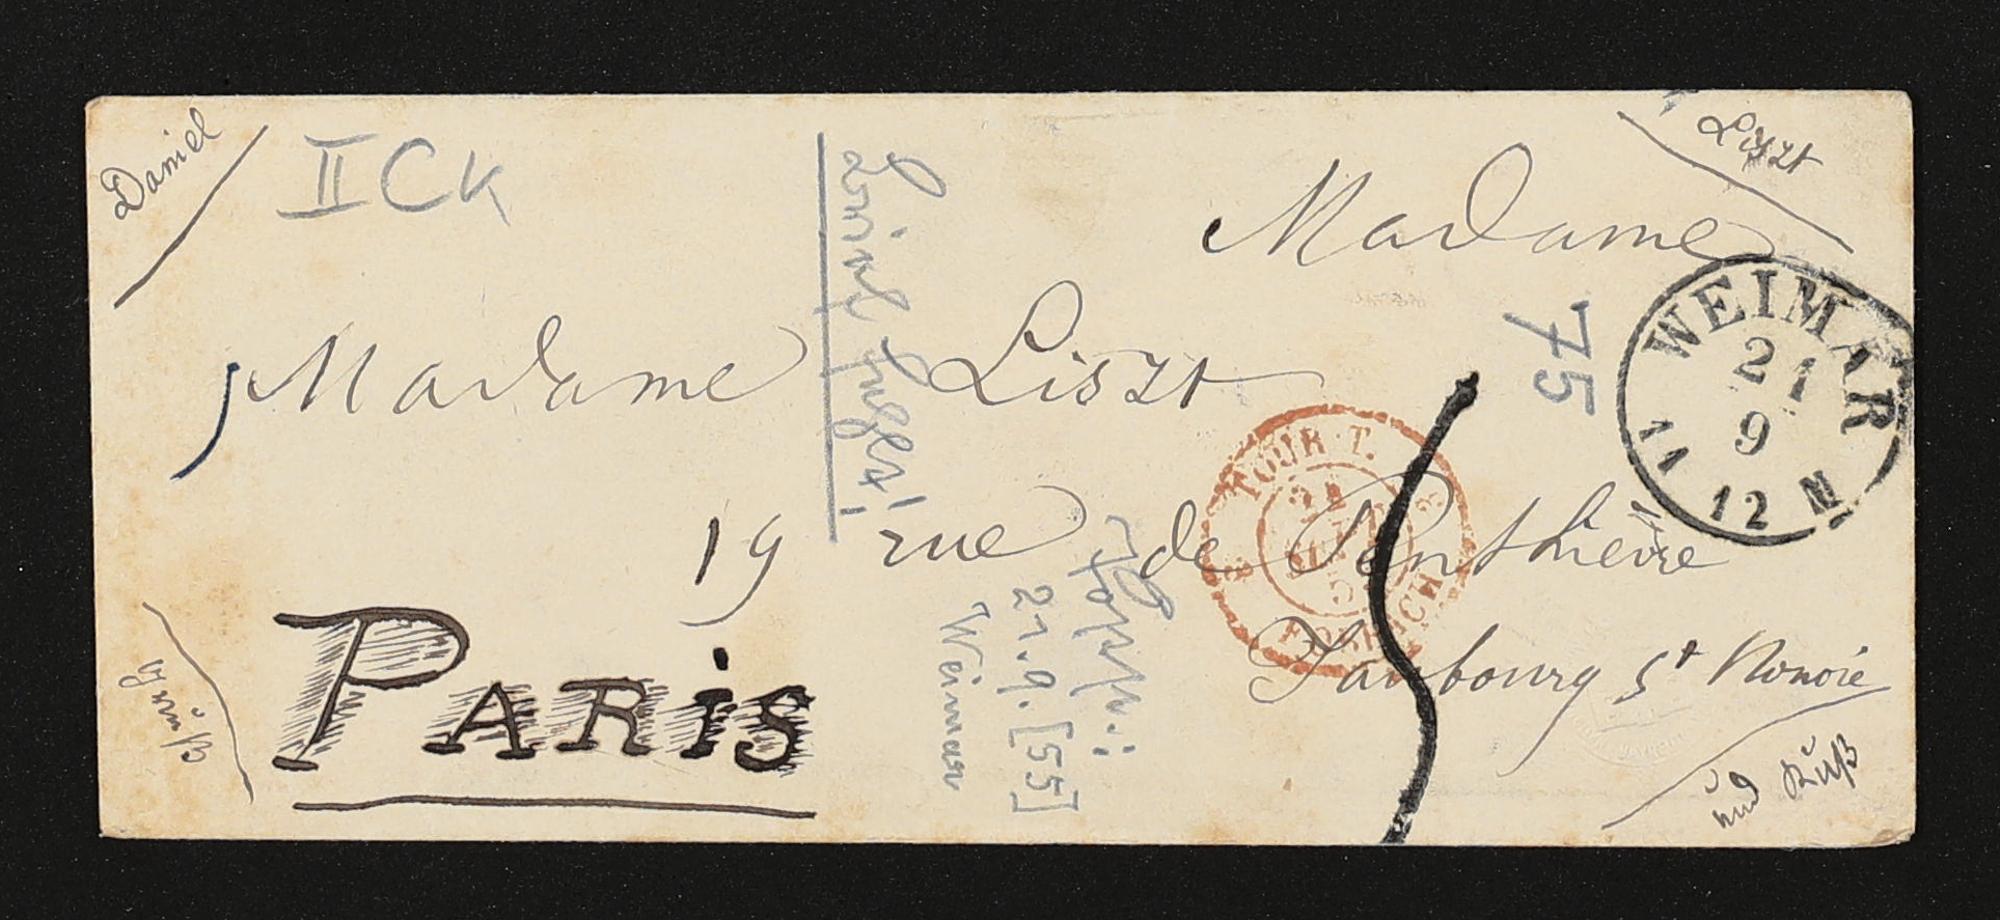 Daniel
Liszt
II CK
Madame
Madame Liszt
75
WEIMAR
21
9
11 12 N
TOUR-T.
FORBACH
19 rue de Penthièvre
Faubourg St Honoré
PARiS
21.9.[55]
Weimar
Grüß
und Kuß